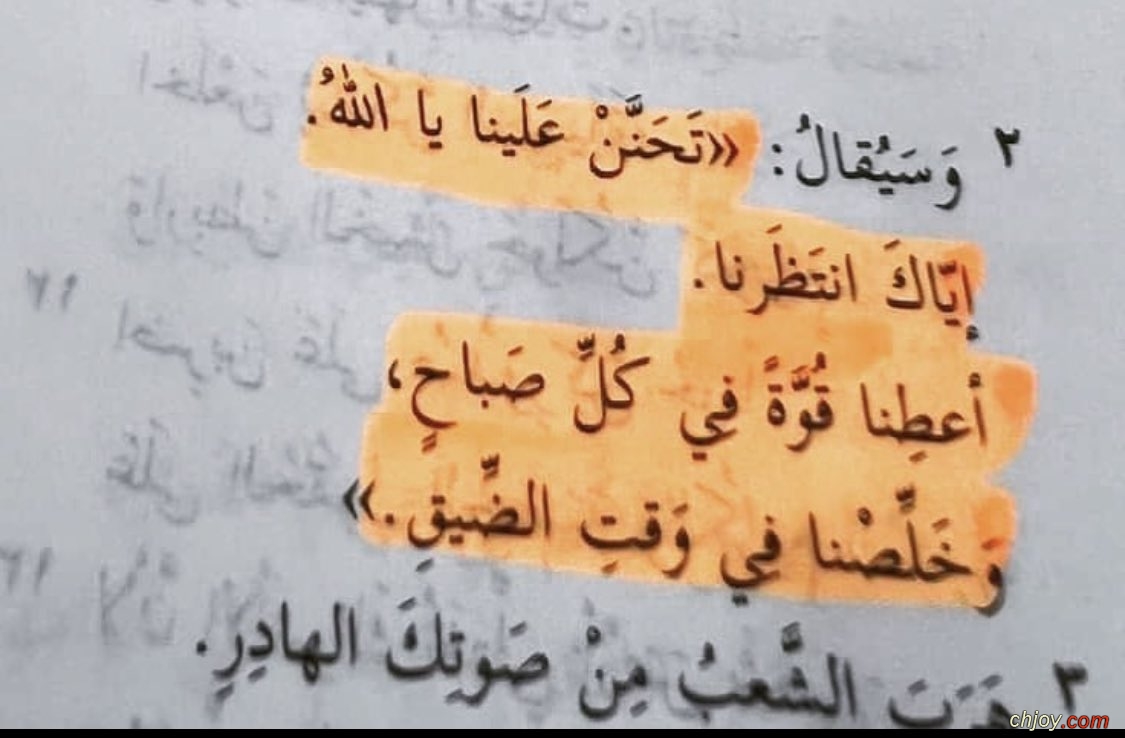 ٢ وَسَيُقالُ: «تَحَنَّنْ عَلَينا يا اللهُ.
إيّاكَ انتَظَرنا.
أعطِنا قُوَّةً فِي كُلِّ صَباحٍ،
وَخَلِّصْنا فِي وَقتِ الضِّيقِ.»
٣ هَرَبَ الشَّعبُ مِنْ صَوتِكَ الهادِرِ.
chjoy.com